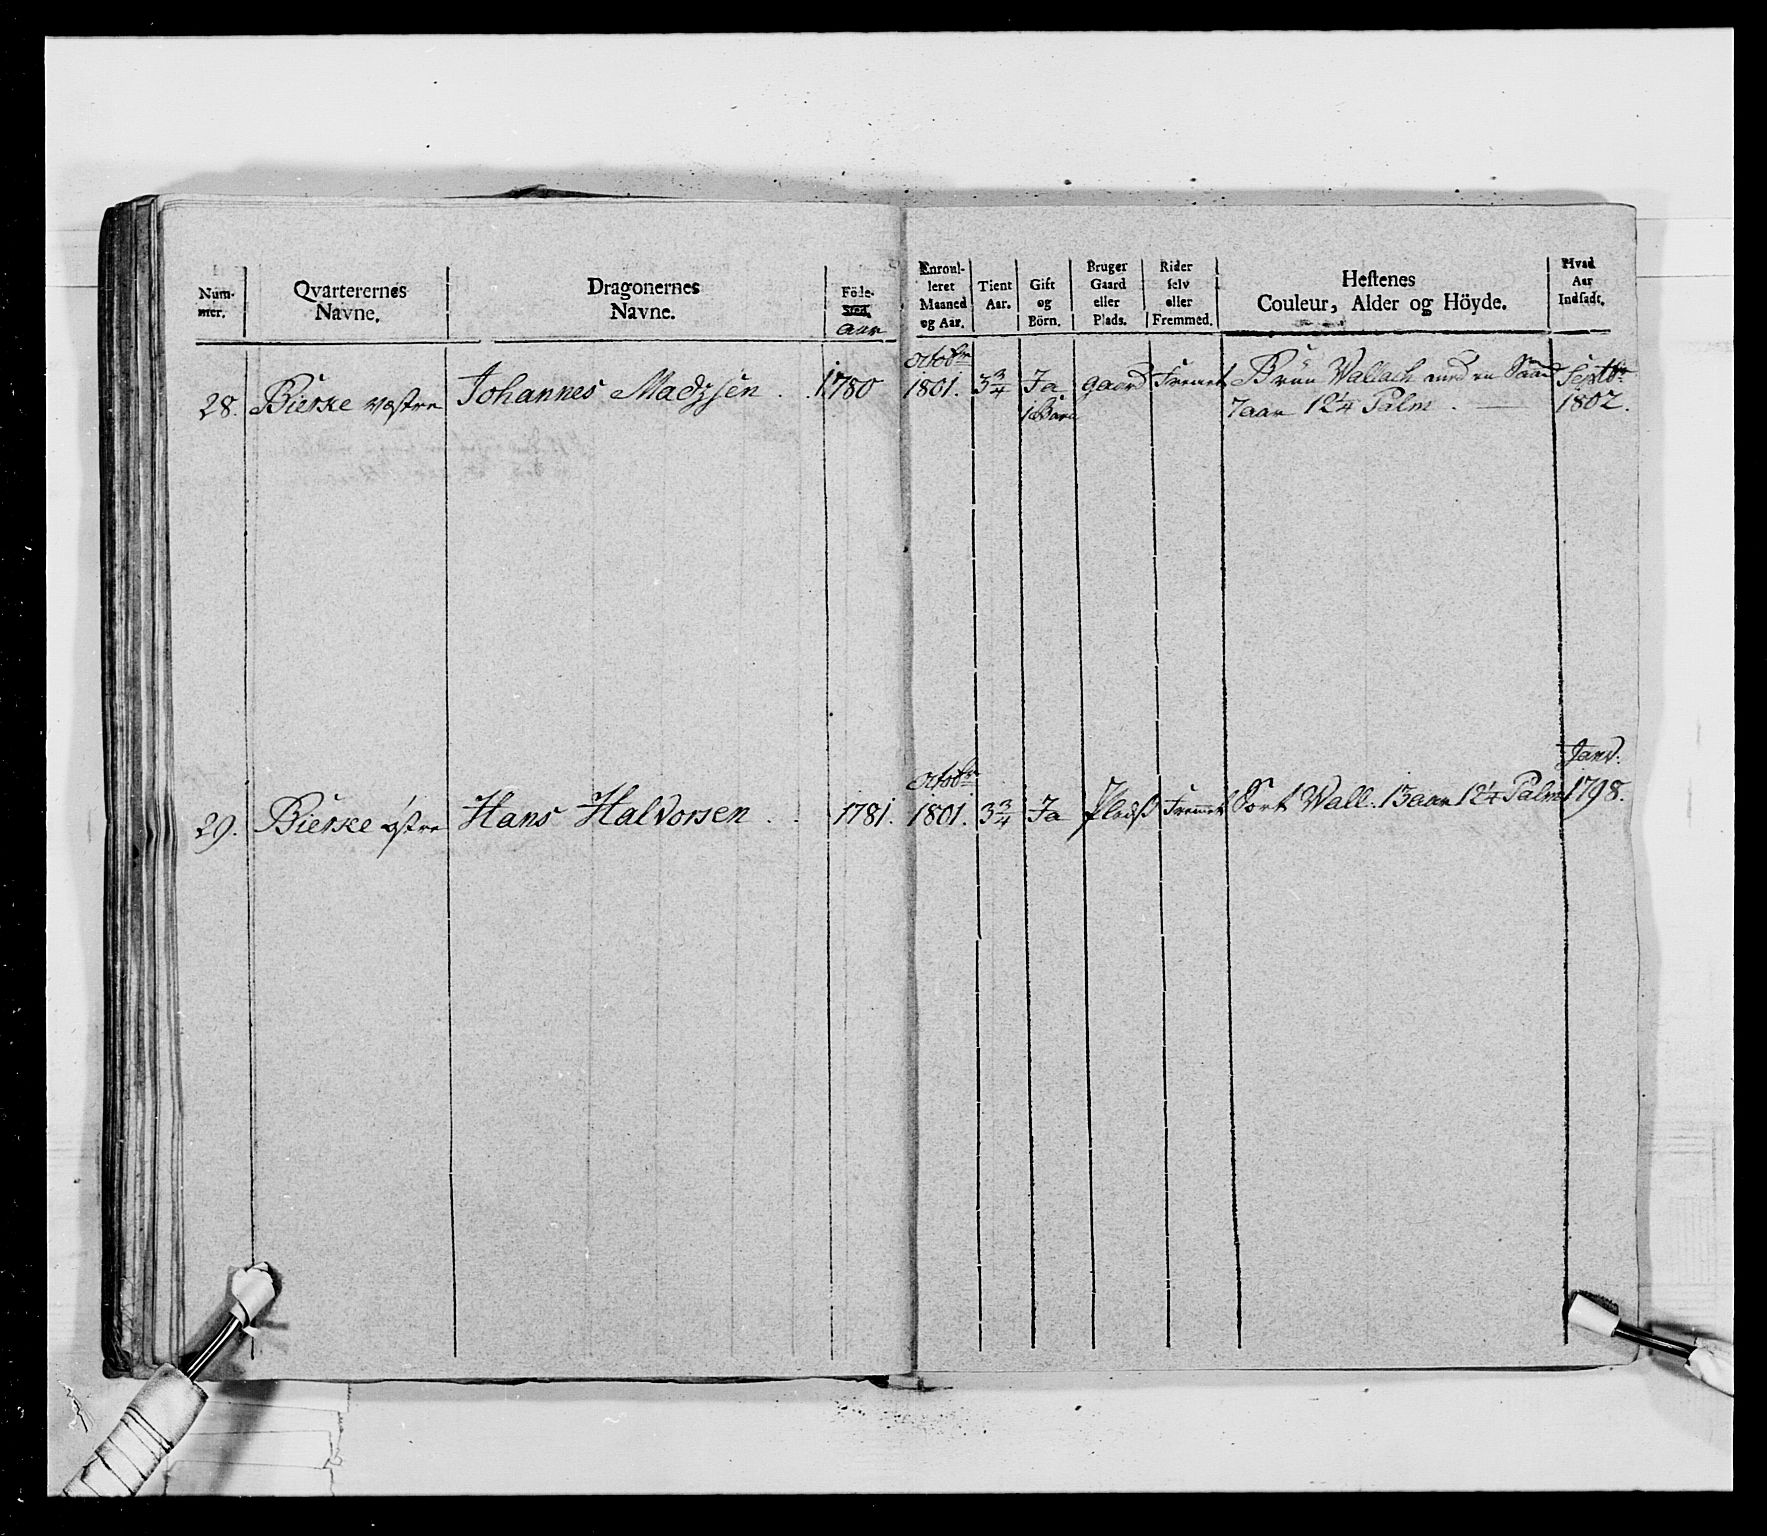 Num-
mer.
Qvarterernes
Navne.
Dragonernes
Navne.
Föde-
Sted.
Aar
Enroul-
leret
Maaned
og Aar.
Tient
Aar.
Gift
og
Börn.
Bruger
Gaard
eller
Plads.
Rider
selv
eller
Fremmed.
Hestenes
Couleur, Alder og Höyde.
Hvad
Aar
Indsadt.
28. Bierke væstre Johannes Madzsen . . 1780 Octobr 1801. 3 3/4 Ja 1 Barn gaard Fremet Brun Wallach med en
7 aar 12 1/4 Palm . — Septbr 1802.
29. Bierke østre Hans Halvorsen . . 1781. Octobr 1801. 3 3/4 Ja Plads Fremet Sort Wall. 13 aar 12 1/4 Palm Janv. 1798.